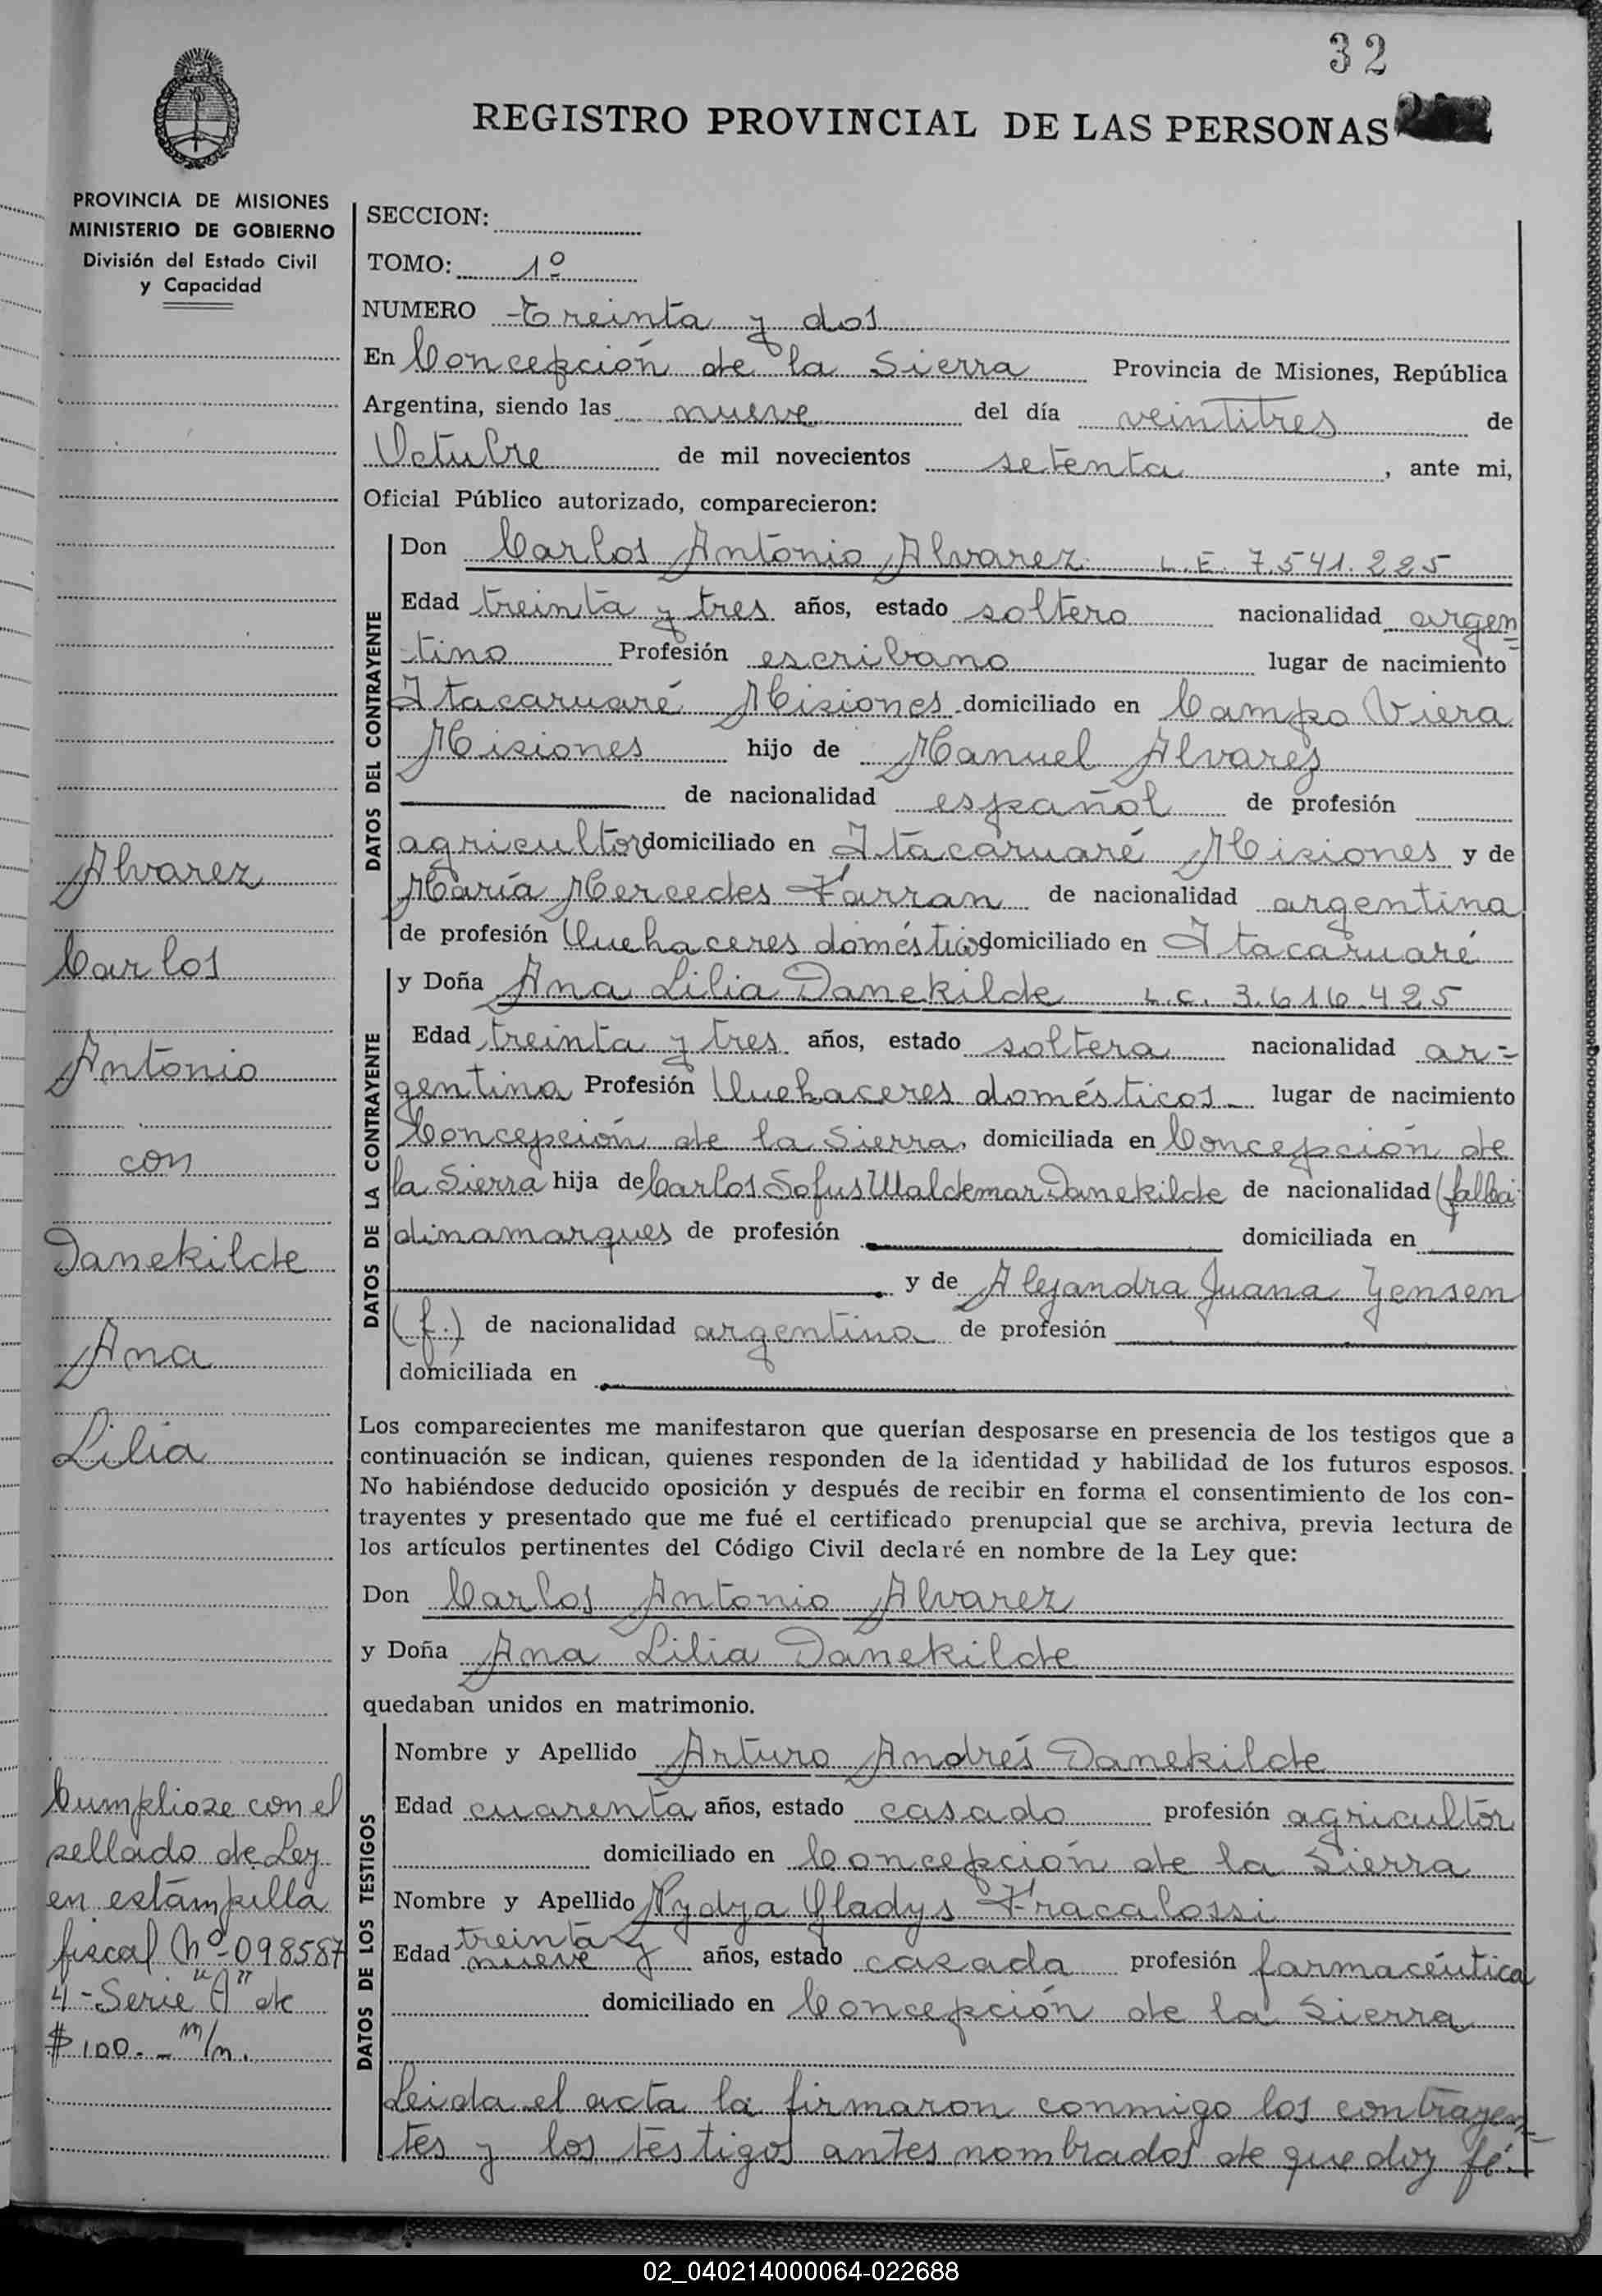 32
REGISTRO PROVINCIAL DE LAS PERSONAS
PROVINCIA DE MISIONES
MINISTERIO DE GOBIERNO
División del Estado Civil
y Capacidad
Alvarez
Carlos
Antonio
con
Danekilde
Ana
Lilia
Cumpliose con el
sellado de Ley
en estampilla
fiscal Nº 098587
4 - Serie "A" de
$ 100.- m/n.
SECCION:
TOMO: 1º
NUMERO Treinta y dos
En Concepción de la Sierra Provincia de Misiones, República
Argentina, siendo las nueve del día veintitres de
Octubre de mil novecientos setenta, ante mi,
Oficial Público autorizado, comparecieron:
DATOS DEL CONTRAYENTE
Don Carlos Antonio Alvarez L.E. 7.541.225
Edad treinta y tres años, estado soltero nacionalidad argen
tino Profesión escribano lugar de nacimiento
Itacaruaré Misiones domiciliado en Campo Viera
Misiones hijo de Manuel Alvarez
de nacionalidad español de profesión
agricultor domiciliado en Itacaruaré Misiones y de
María Mercedes Farran de nacionalidad argentina
de profesión Quehaceres domésticos domiciliado en Itacaruaré
DATOS DE LA CONTRAYENTE
y Doña Ana Lilia Danekilde L.C. 3.616.425
Edad treinta y tres años, estado soltera nacionalidad ar-
gentina Profesión Quehaceres domésticos lugar de nacimiento
Concepción de la Sierra, domiciliada en Concepción de
la Sierra hija de Carlos Sofus Waldemar Danekilde de nacionalidad
dinamarques de profesión domiciliada en
y de Alejandra Juana Yensen
(f.) de nacionalidad argentina de profesión
domiciliada en
Los comparecientes me manifestaron que querían desposarse en presencia de los testigos que a
continuación se indican, quienes responden de la identidad y habilidad de los futuros esposos.
No habiéndose deducido oposición y después de recibir en forma el consentimiento de los con-
trayentes y presentado que me fué el certificado prenupcial que se archiva, previa lectura de
los artículos pertinentes del Código Civil declaré en nombre de la Ley que:
Don Carlos Antonio Alvarez
y Doña Ana Lilia Danekilde
quedaban unidos en matrimonio.
DATOS DE LOS TESTIGOS
Nombre y Apellido Arturo Andrés Danekilde
Edad cuarenta años, estado casado profesión agricultor
domiciliado en Concepción de la Sierra
Nombre y Apellido Nydya Gladys Fracalossi
Edad treinta y nueve años, estado casada profesión farmacéutica
domiciliado en Concepción de la Sierra
Leida el acta la firmaron conmigo los contrayen-
tes y los testigos antes nombrados de que doy fé.-
02_040214000064-022688